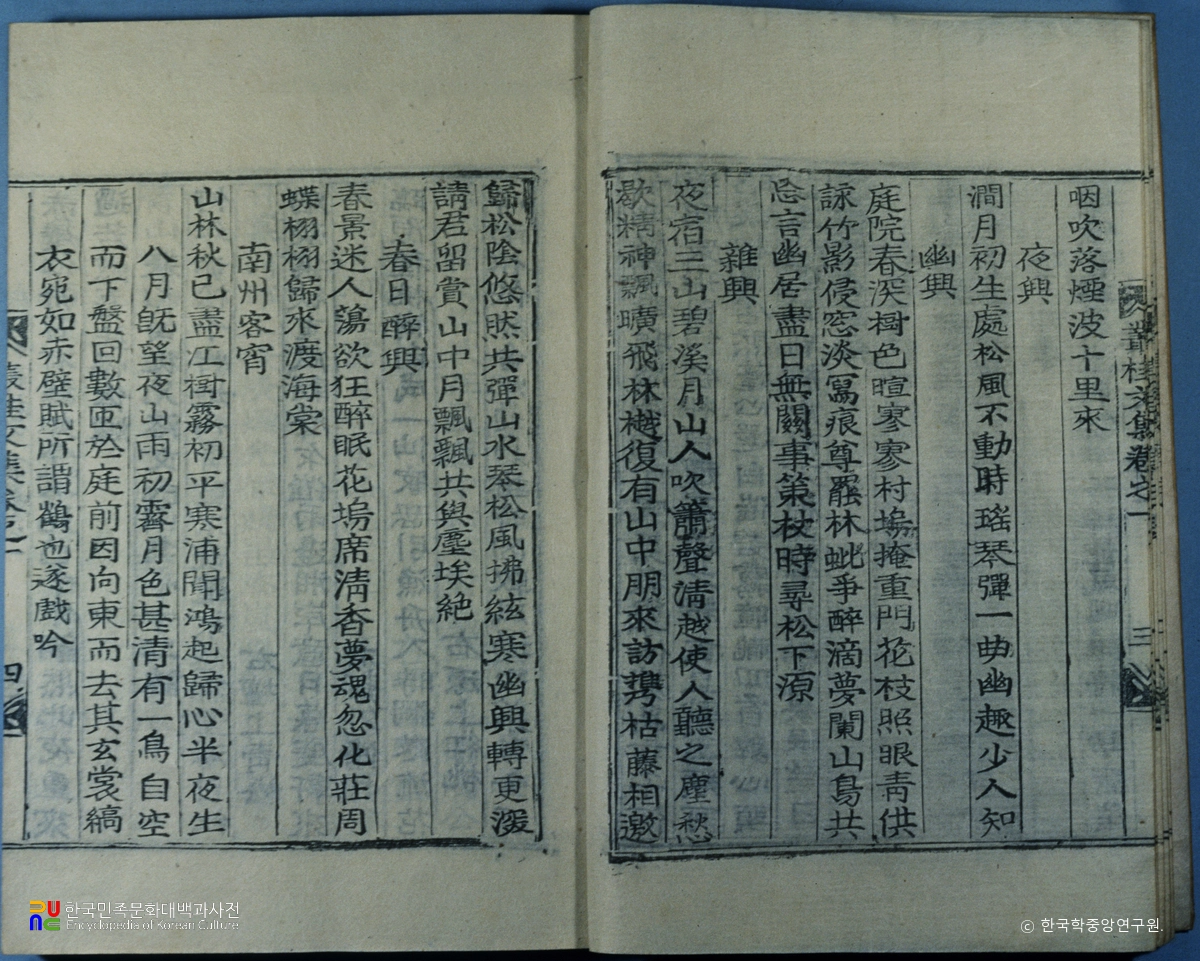 叢桂文集卷之一 三
咽吹落煙波十里來
夜興
澗月初生處松風不動時瑤琴彈一曲幽趣少人知
幽興
庭院春深樹色暄寥寥村塢掩重門花枝照眼靑供
詠竹影侵窓淡寫痕尊罷林蚍爭醉滴夢闌山鳥共
忘言幽居盡日無關事策杖時尋松下源
雜興
夜宿三山碧溪月山人吹簫聲淸越使人聽之塵愁
歇精神飄曠飛林樾復有山中朋來訪携枯藤相邀
歸松陰悠然共彈山水琴松風拂絃寒幽興轉更深
請君留賞山中月飄飄共與塵埃絶
春日醉興
春景迷人蕩欲狂醉眠花塢席淸香夢魂忽化莊周
蝶栩栩歸來渡海棠
南州客宵
山林秋已盡江樹霧初平寒浦聞鴻起歸心半夜生
八月旣望夜山雨初霽月色甚清有一鳥自空
而下盤回數匝於庭前因向東而去其玄裳縞
衣宛如赤壁賦所謂鶴也遂戲吟
叢桂文集卷之一 四
한국민족문화대백과사전
Encyclopedia of Korean Culture
© 한국학중앙연구원.